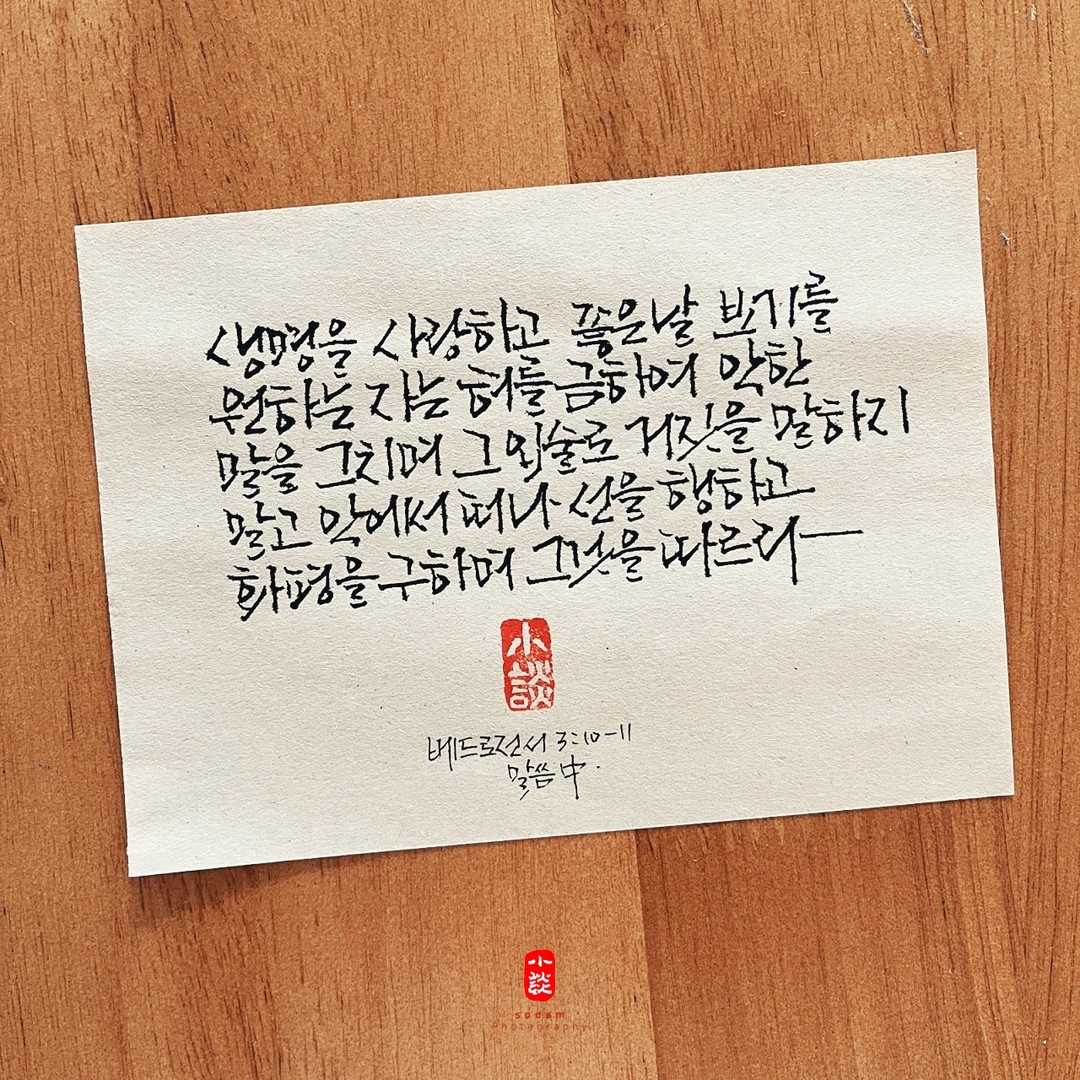 생명을 사랑하고 좋은날 보기를
원하는 자는 혀를 금하여 악한
말을 그치며 그 입술로 거짓을 말하지
말고 악에서 떠나 선을 행하고
화평을 구하며 그것을 따르라
小談
베드로전서 3:10-11
말씀 中.
小談
sodam
Photography